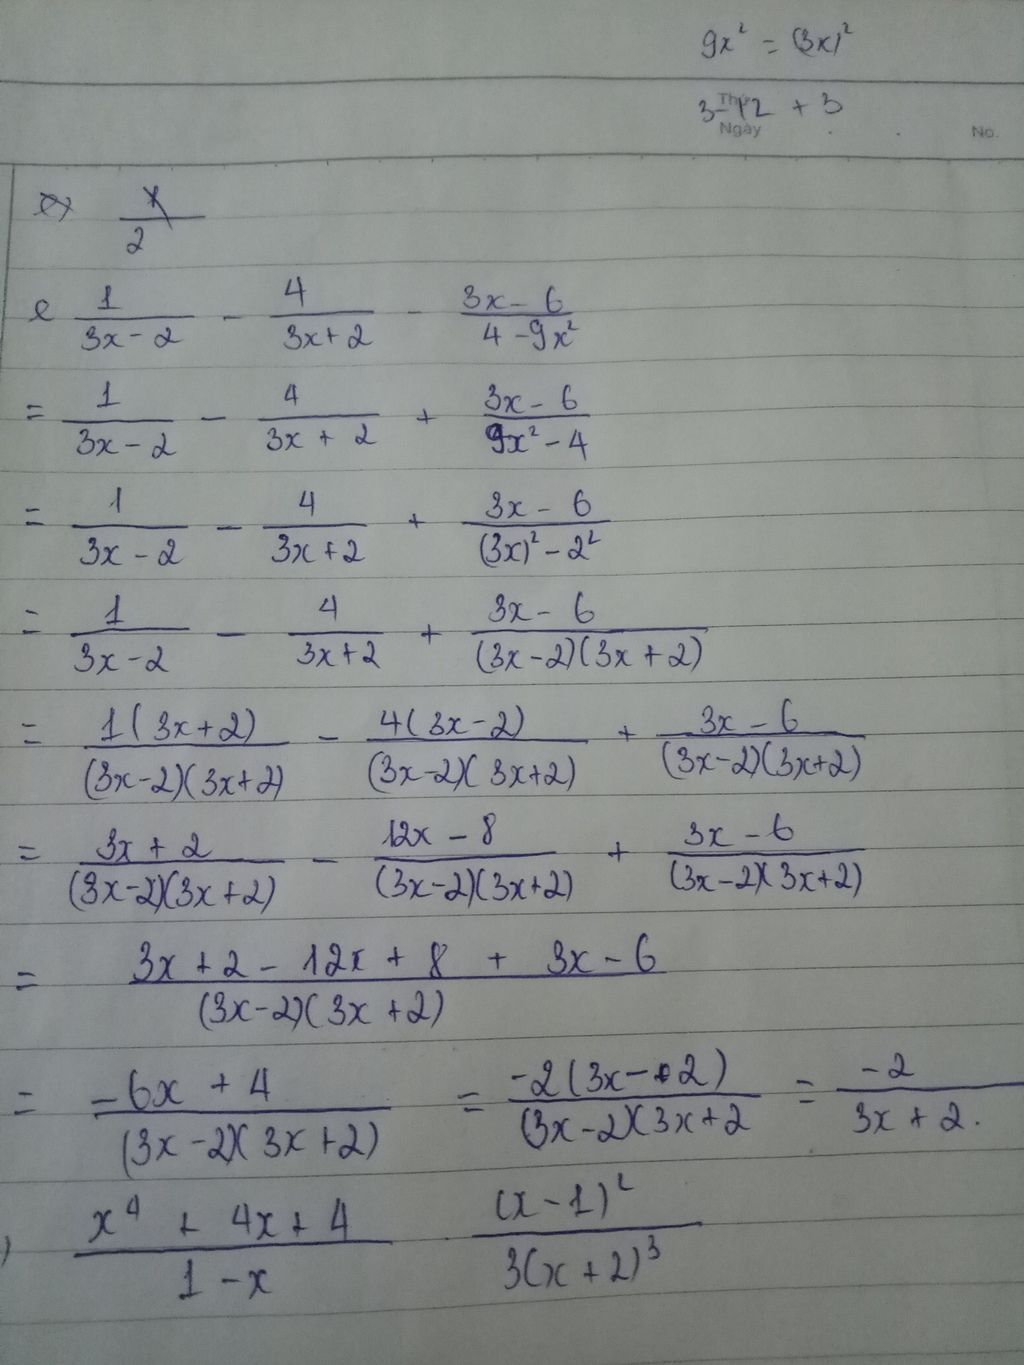 9x² = (3x)²
3-12 + 3
Thứ
Ngày
No.
x/2
e 1/(3x - 2) - 4/(3x + 2) - (3x - 6)/(4 - 9x²)
= 1/(3x - 2) - 4/(3x + 2) + (3x - 6)/(9x² - 4)
= 1/(3x - 2) - 4/(3x + 2) + (3x - 6)/((3x)² - 2²)
= 1/(3x - 2) - 4/(3x + 2) + (3x - 6)/((3x - 2)(3x + 2))
= 1(3x + 2)/((3x - 2)(3x + 2)) - 4(3x - 2)/((3x - 2)(3x + 2)) + (3x - 6)/((3x - 2)(3x + 2))
= (3x + 2)/((3x - 2)(3x + 2)) - (12x - 8)/((3x - 2)(3x + 2)) + (3x - 6)/((3x - 2)(3x + 2))
= (3x + 2 - 12x + 8 + 3x - 6)/((3x - 2)(3x + 2))
= (-6x + 4)/((3x - 2)(3x + 2)) = -2(3x - 2)/((3x - 2)(3x + 2) = -2/(3x + 2).
) (x⁴ + 4x + 4)/(1 - x) · (x - 1)²/(3(x + 2)³)